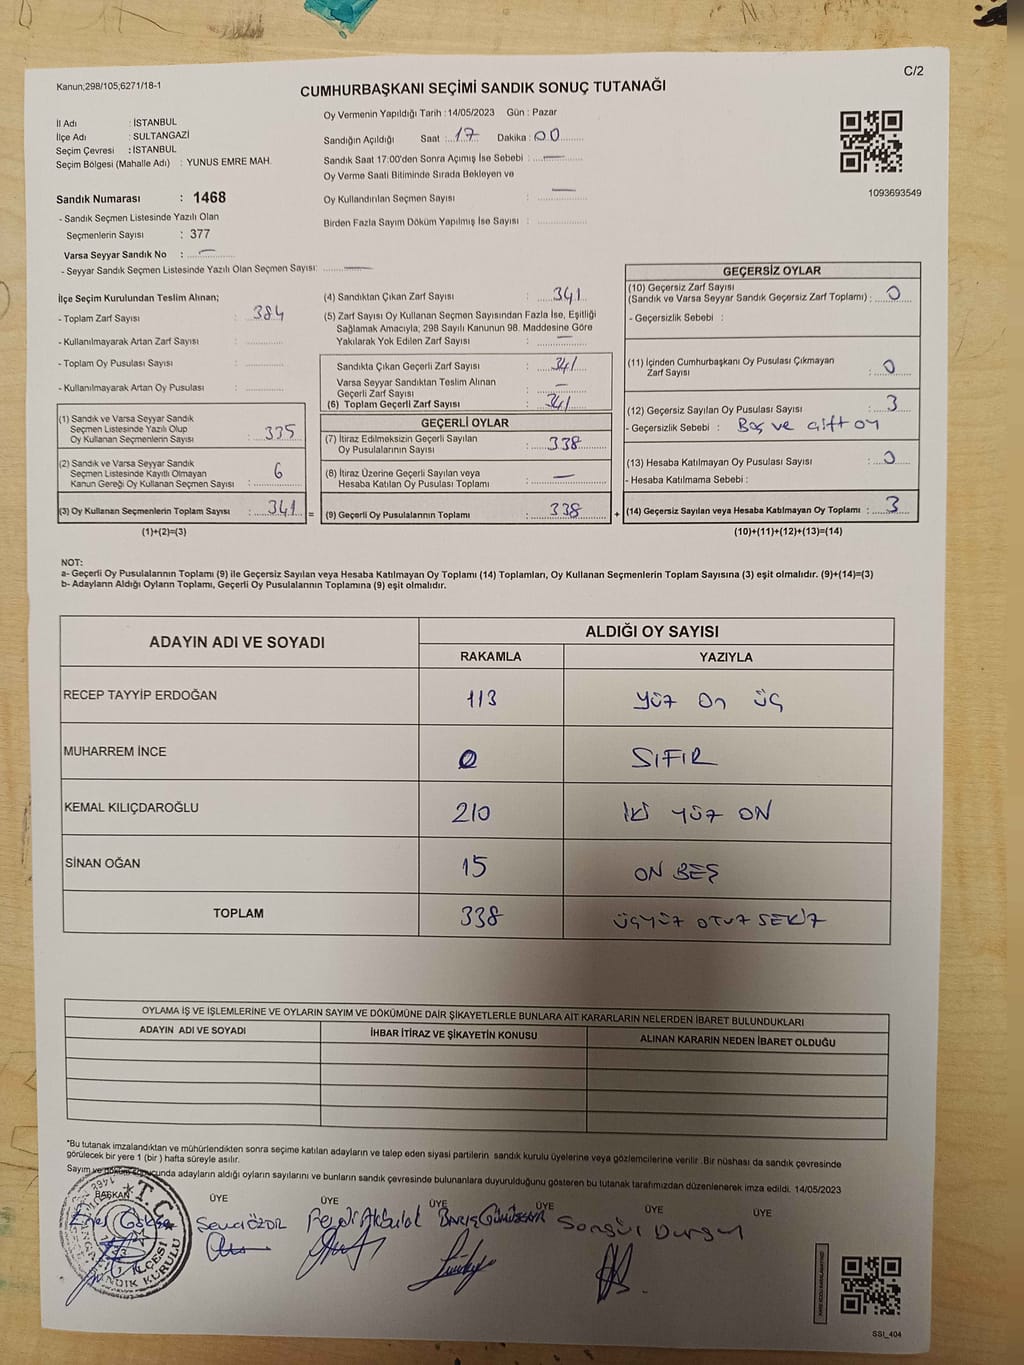 Kanun;298/105;6271/18-1
C/2
CUMHURBAŞKANI SEÇİMİ SANDIK SONUÇ TUTANAĞI
İl Adı : İSTANBUL
İlçe Adı : SULTANGAZİ
Seçim Çevresi : İSTANBUL
Seçim Bölgesi (Mahalle Adı) : YUNUS EMRE MAH.
Sandık Numarası : 1468
- Sandık Seçmen Listesinde Yazılı Olan
Seçmenlerin Sayısı : 377
Varsa Seyyar Sandık No : —
- Seyyar Sandık Seçmen Listesinde Yazılı Olan Seçmen Sayısı: —
Oy Vermenin Yapıldığı Tarih : 14/05/2023 Gün : Pazar
Sandığın Açıldığı Saat : 17 Dakika : 00
Sandık Saat 17:00'den Sonra Açımış İse Sebebi : —
Oy Verme Saati Bitiminde Sırada Bekleyen ve
Oy Kullandırılan Seçmen Sayısı : —
Birden Fazla Sayım Döküm Yapılmış İse Sayısı :
1093693549
İlçe Seçim Kurulundan Teslim Alınan;
- Toplam Zarf Sayısı : 384
- Kullanılmayarak Artan Zarf Sayısı :
- Toplam Oy Pusulası Sayısı :
- Kullanılmayarak Artan Oy Pusulası :
(1) Sandık ve Varsa Seyyar Sandık
Seçmen Listesinde Yazılı Olup
Oy Kullanan Seçmenlerin Sayısı : 335
(2) Sandık ve Varsa Seyyar Sandık
Seçmen Listesinde Kayıtlı Olmayan
Kanun Gereği Oy Kullanan Seçmen Sayısı : 6
(3) Oy Kullanan Seçmenlerin Toplam Sayısı : 341
(1)+(2)=(3)
(4) Sandıktan Çıkan Zarf Sayısı : 341
(5) Zarf Sayısı Oy Kullanan Seçmen Sayısından Fazla İse, Eşitliği
Sağlamak Amacıyla; 298 Sayılı Kanunun 98. Maddesine Göre
Yakılarak Yok Edilen Zarf Sayısı : —
Sandıkta Çıkan Geçerli Zarf Sayısı : 341
Varsa Seyyar Sandıktan Teslim Alınan
Geçerli Zarf Sayısı : —
(6) Toplam Geçerli Zarf Sayısı : 341
GEÇERLİ OYLAR
(7) İtiraz Edilmeksizin Geçerli Sayılan
Oy Pusulalarının Sayısı : 338
(8) İtiraz Üzerine Geçerli Sayılan veya
Hesaba Katılan Oy Pusulası Toplamı : —
= (9) Geçerli Oy Pusulalarının Toplamı : 338
GEÇERSİZ OYLAR
(10) Geçersiz Zarf Sayısı
(Sandık ve Varsa Seyyar Sandık Geçersiz Zarf Toplamı) : 0
- Geçersizlik Sebebi :
(11) İçinden Cumhurbaşkanı Oy Pusulası Çıkmayan
Zarf Sayısı : 0
(12) Geçersiz Sayılan Oy Pusulası Sayısı : 3
- Geçersizlik Sebebi : Boş ve çift oy
(13) Hesaba Katılmayan Oy Pusulası Sayısı : 0
- Hesaba Katılmama Sebebi :
+ (14) Geçersiz Sayılan veya Hesaba Katılmayan Oy Toplamı : 3
(10)+(11)+(12)+(13)=(14)
NOT:
a- Geçerli Oy Pusulalarının Toplamı (9) ile Geçersiz Sayılan veya Hesaba Katılmayan Oy Toplamı (14) Toplamları, Oy Kullanan Seçmenlerin Toplam Sayısına (3) eşit olmalıdır. (9)+(14)=(3)
b- Adayların Aldığı Oyların Toplamı, Geçerli Oy Pusulalarının Toplamına (9) eşit olmalıdır.
ADAYIN ADI VE SOYADI
ALDIĞI OY SAYISI
RAKAMLA YAZIYLA
RECEP TAYYİP ERDOĞAN 113 yüz on üç
MUHARREM İNCE 0 SIFIR
KEMAL KILIÇDAROĞLU 210 İki yüz ON
SİNAN OĞAN 15 ON BEŞ
TOPLAM 338 üçyüz otuz SEKİZ
OYLAMA İŞ VE İŞLEMLERİNE VE OYLARIN SAYIM VE DÖKÜMÜNE DAİR ŞİKAYETLERLE BUNLARA AİT KARARLARIN NELERDEN İBARET BULUNDUKLARI
ADAYIN ADI VE SOYADI İHBAR İTİRAZ VE ŞİKAYETİN KONUSU ALINAN KARARIN NEDEN İBARET OLDUĞU
*Bu tutanak imzalandıktan ve mühürlendikten sonra seçime katılan adayların ve talep eden siyasi partilerin sandık kurulu üyelerine veya gözlemcilerine verilir .Bir nüshası da sandık çevresinde
görülecek bir yere 1 (bir ) hafta süreyle asılır.
Sayım ve döküm sonucunda adayların aldığı oyların sayılarını ve bunların sandık çevresinde bulunanlara duyurulduğunu gösteren bu tutanak tarafımızdan düzenlenerek imza edildi. 14/05/2023
BAŞKAN ÜYE ÜYE ÜYE ÜYE ÜYE ÜYE
Sevcı ÖZOR Songül Dursun
T.C.
SANDIK KURULU
SSİ_404